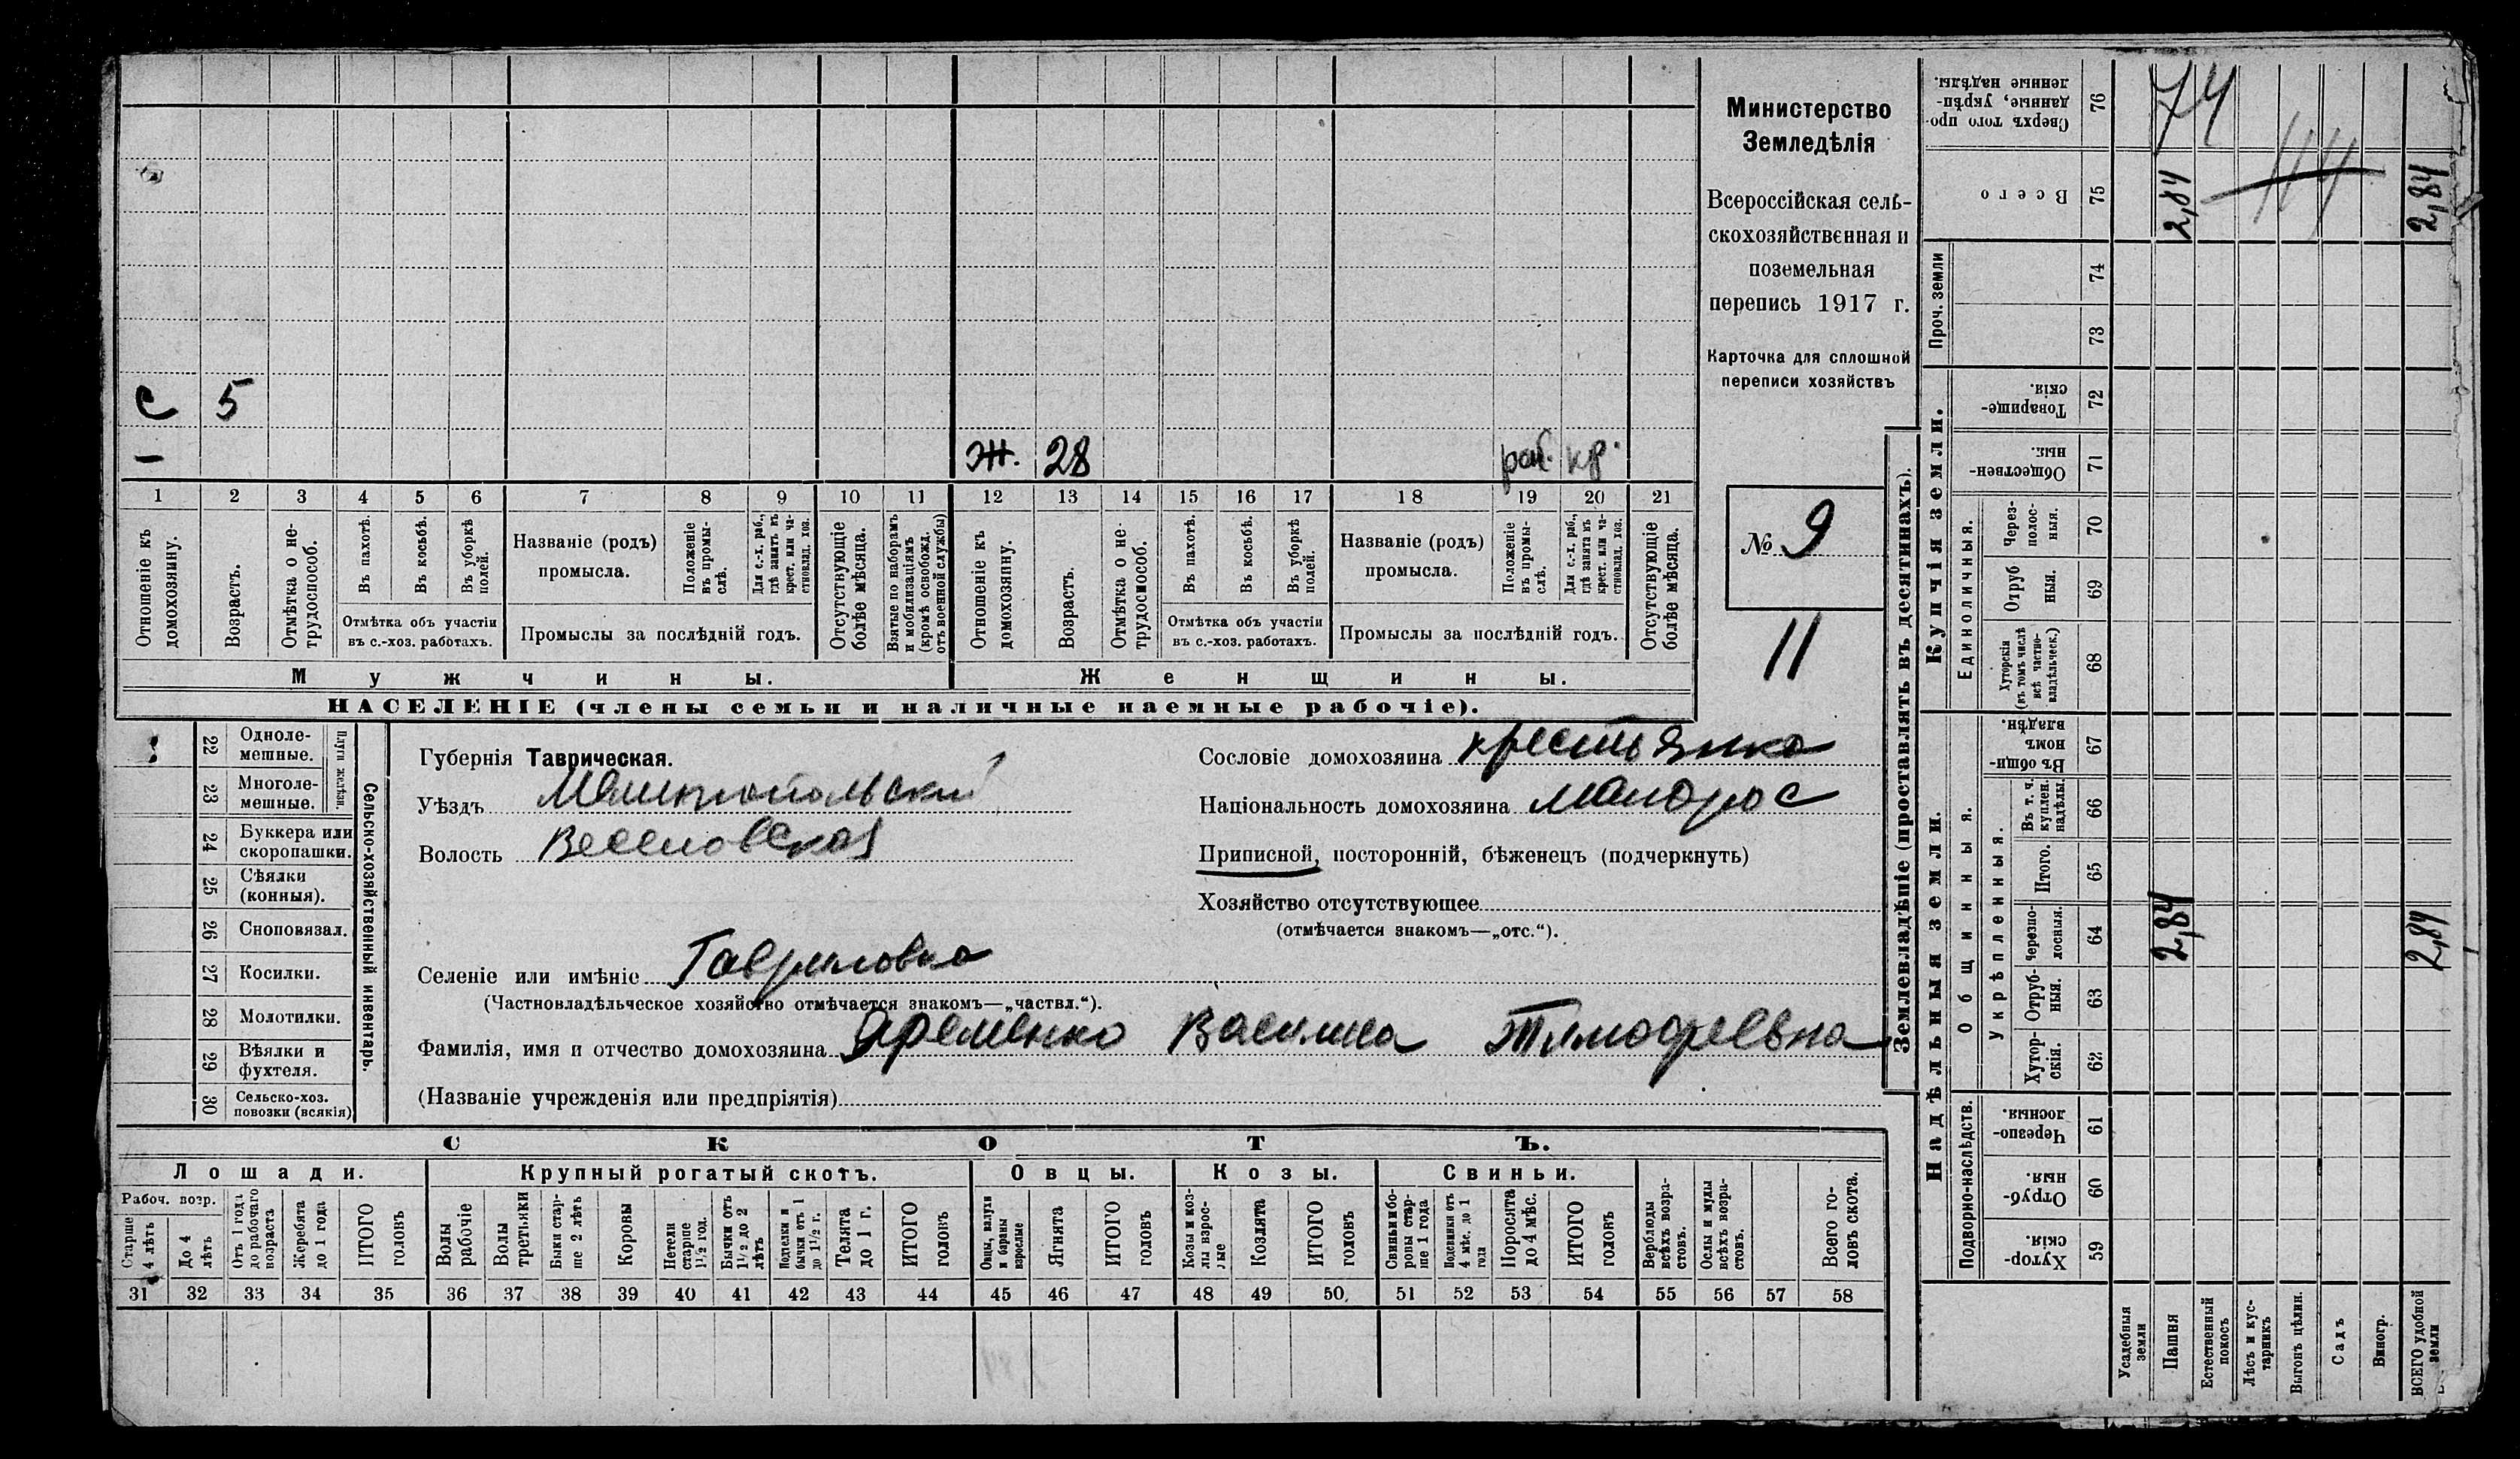 Министерство
Земледѣлія
Всероссійская сель-
скохозяйственная и
поземельная
перепись 1917 г.
Карточка для сплошной
переписи хозяйствъ
№ 9
11
с 5
— ж. 28 раб. кр.
1 2 3 4 5 6 7 8 9 10 11 12 13 14 15 16 17 18 19 20 21
Отношеніе къ домохозяину.
Возрастъ.
Отмѣтка о не-трудоспособ.
Въ пахотѣ.
Въ косьбѣ.
Въ уборкѣ полей.
Отмѣтка объ участіи
въ с.-хоз. работахъ.
Названіе (родъ)
промысла.
Положеніе въ промы-слѣ.
Для с.-х. раб., гдѣ занятъ въ крест. или ча-стновлад. хоз.
Промыслы за послѣдній годъ.
Отсутствующіе болѣе мѣсяца.
Взятые по наборамъ и мобилизаціямъ (кромѣ освобожд. отъ военной службы)
Отношеніе къ домохозяину.
Возрастъ.
Отмѣтка о не-трудоспособ.
Въ пахотѣ.
Въ косьбѣ.
Въ уборкѣ полей.
Отмѣтка объ участіи
въ с.-хоз. работахъ.
Названіе (родъ)
промысла.
Положеніе въ промы-слѣ.
Для с.-х. раб., гдѣ занята въ крест. или ча-стновлад. хоз.
Промыслы за послѣдній годъ.
Отсутствующіе болѣе мѣсяца.
Мужчины. Женщины.
НАСЕЛЕНІЕ (члены семьи и наличные наемные рабочіе).
Сельско-хозяйственный инвентарь.
Плуги желѣзн.
22 Одноле-мешные.
23 Многоле-мешные.
24 Буккера или скоропашки.
25 Сѣялки (конныя).
26 Сноповязал.
27 Косилки.
28 Молотилки.
29 Вѣялки и фухтеля.
30 Сельско-хоз. повозки (всякія)
Губернія Таврическая.
Уѣздъ Мелитопольский
Волость Веселовская
Сословіе домохозяина крестьянка
Національность домохозяина малорос
Приписной, посторонній, бѣженецъ (подчеркнуть)
Хозяйство отсутствующее
(отмѣчается знакомъ—„отс.“).
Селеніе или имѣніе Гавриловка
(Частновладѣльческое хозяйство отмѣчается знакомъ—„частвл.“).
Фамилія, имя и отчество домохозяина Яременко Василиса Тимофеевна
(Названіе учрежденія или предпріятія)
СКОТЪ.
Лошади. Крупный рогатый скотъ. Овцы. Козы. Свиньи.
Рабоч. возр.
Старше 4 лѣтъ
До 4 лѣтъ
Отъ 1 года до рабочаго возраста
Жеребята до 1 года
ИТОГО головъ
Волы рабочіе
Волы третьяки
Быки стар-ше 2 лѣтъ
Коровы
Нетели старше 1½ год.
Бычки отъ 1½ до 2 лѣтъ
Подтелки и бычки отъ 1 до 1½ г.
Телята до 1 г.
ИТОГО головъ
Овцы, валухи и бараны взрослые
Ягнята
ИТОГО головъ
Козы и коз-лы взрос-лые
Козлята
ИТОГО головъ
Свиньи и бо-ровы стар-ше 1 года
Подсвинки отъ 4 мѣс. до 1 года
Поросята до 4 мѣс.
ИТОГО головъ
Верблюды всѣхъ возра-стовъ.
Ослы и мулы всѣхъ возра-стовъ.
Всего го-ловъ скота.
31 32 33 34 35 36 37 38 39 40 41 42 43 44 45 46 47 48 49 50 51 52 53 54 55 56 57 58
Землевладѣніе (проставлять въ десятинахъ).
Надѣльныя земли.
Подворно-наслѣдств.
Хутор-скія. 59
Отруб-ныя. 60
Черезпо-лосныя. 61
Общинныя.
Укрѣпленныя.
Хутор-скія. 62
Отруб-ныя. 63
Черезпо-лосныя. 64 2,84 2,84
Итого. 65
Въ т. ч. куплен. надѣлы. 66
Въ общи-номъ владѣн. 67
Купчія земли.
Единоличныя.
Хуторскія (въ томъ числѣ всѣ частно-владѣльческ.) 68
Отруб ныя. 69
Через-полос-ныя. 70
Обществен-ныя. 71
Товарище-скія. 72
Проч. земли
73
74
Всего 75 2,84 2,84
Сверхъ того про-данные, укрѣп-ленные надѣлы. 76
74
Усадебныя земли
Пашня
Естественный покосъ
Лѣсъ и кус-тарникъ
Выгонъ цѣлин.
Садъ
Виногр.
ВСЕГО удобной земли